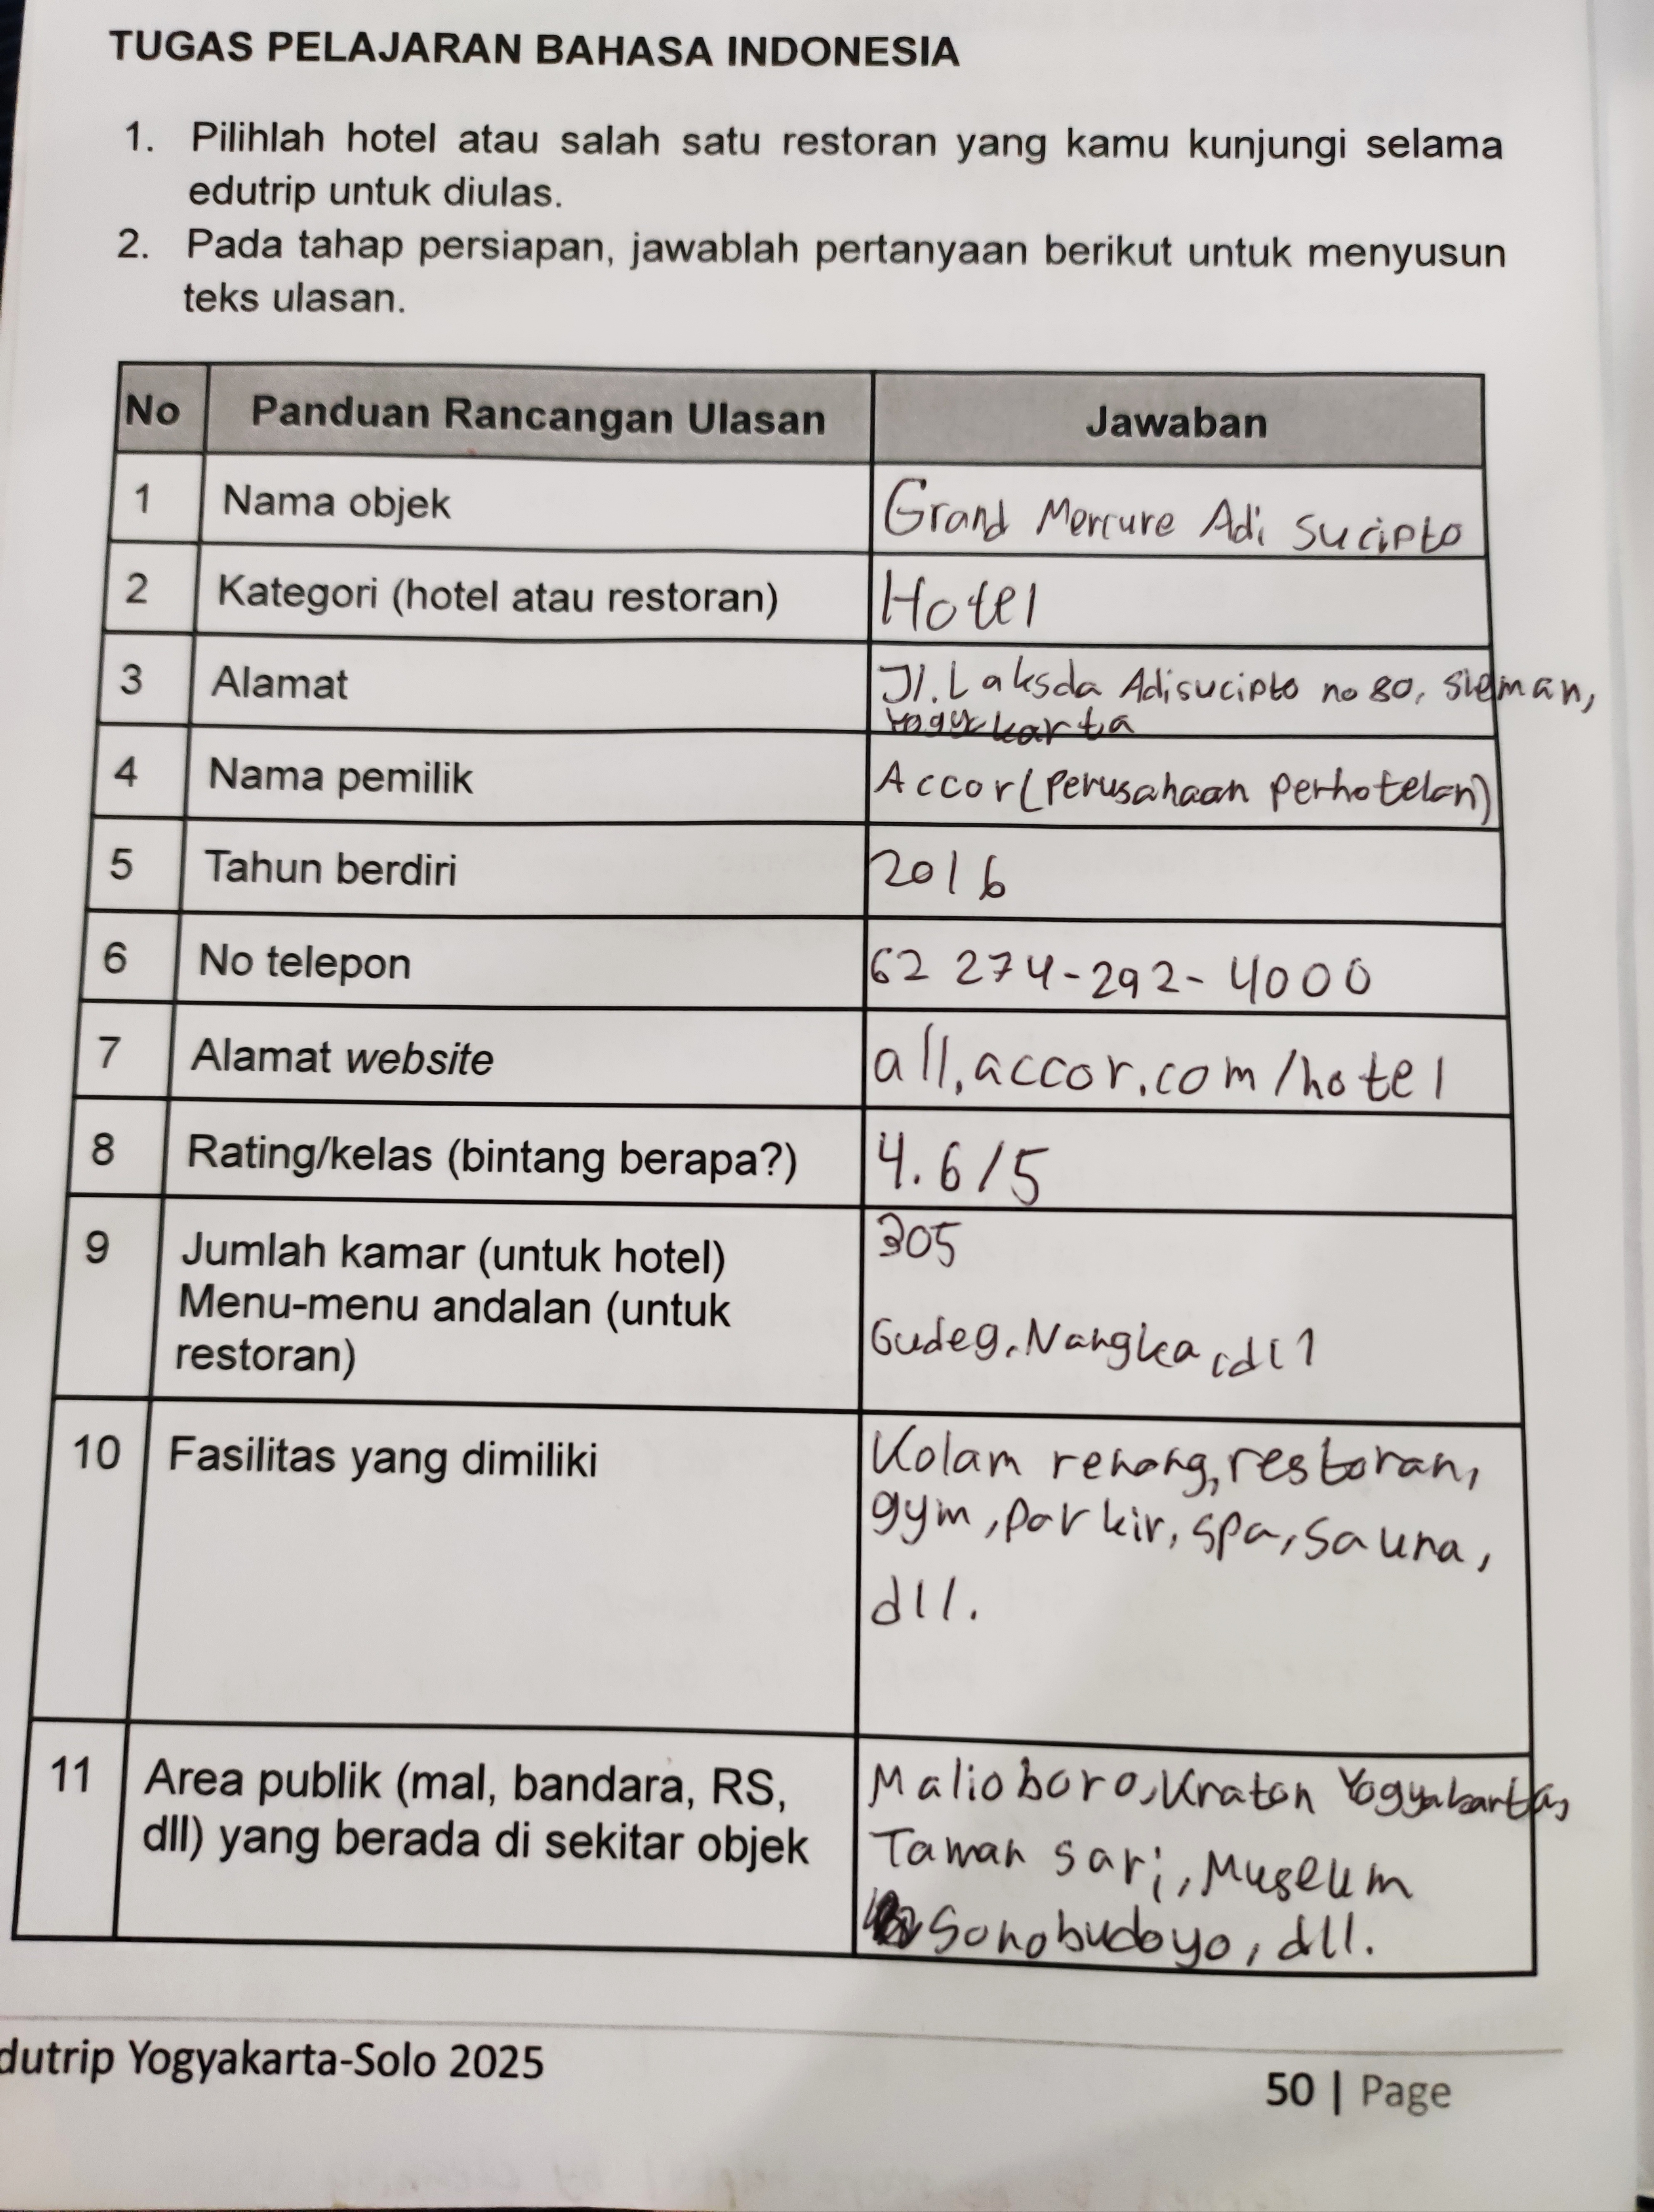 TUGAS PELAJARAN BAHASA INDONESIA
1. Pilihlah hotel atau salah satu restoran yang kamu kunjungi selama
edutrip untuk diulas.
2. Pada tahap persiapan, jawablah pertanyaan berikut untuk menyusun
teks ulasan.
No Panduan Rancangan Ulasan Jawaban
1 Nama objek Grand Mercure Adi Sucipto
2 Kategori (hotel atau restoran) Hotel
3 Alamat Jl. Laksda Adisucipto no 80, Sleman,
Yogyakarta
4 Nama pemilik Accor (Perusahaan Perhotelan)
5 Tahun berdiri 2016
6 No telepon 62 274-292-4000
7 Alamat website all.accor.com/hotel
8 Rating/kelas (bintang berapa?) 4.6/5
9 Jumlah kamar (untuk hotel) 305
Menu-menu andalan (untuk
restoran) Gudeg, Nangka, dll
10 Fasilitas yang dimiliki Kolam renang, restoran,
gym, parkir, spa, sauna,
dll.
11 Area publik (mal, bandara, RS, Malioboro, Kraton Yogyakarta,
dll) yang berada di sekitar objek Taman sari, Museum
Sonobudoyo, dll.
dutrip Yogyakarta-Solo 2025
50 | Page